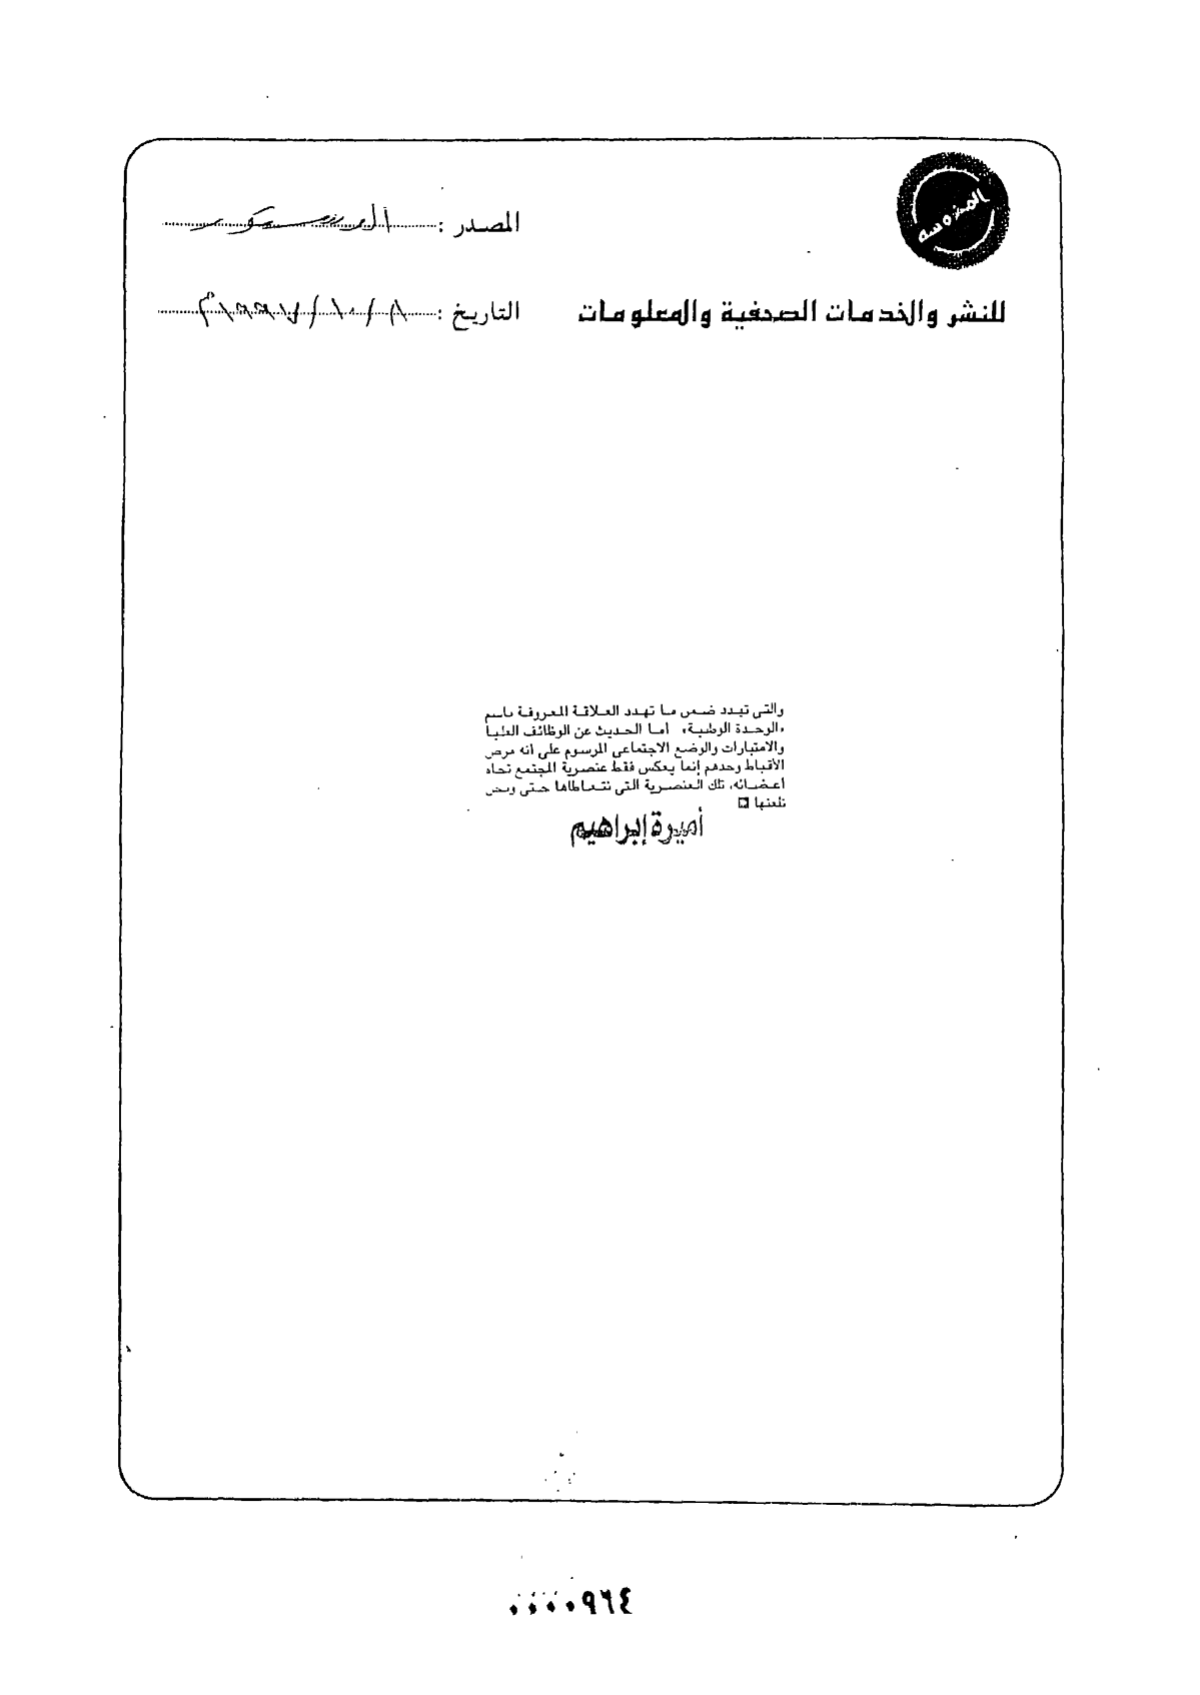 المحروسة
المصدر :
للنشر والخدمات الصحفية والمعلومات
التاريخ : ٨ / ١٠ / ١٩٩٧م
والتى تبدد ضمن ما تهدد العلاقة المعروفة باسم
«الوحدة الوطنية» أما الحديث عن الوظائف العليا
والامتيازات والوضع الاجتماعى المرسوم على انه مرض
الأقباط وحدهم إنما يعكس فقط عنصرية المجتمع تجاه
اعضائه، تلك العنصرية التى نتعاطاها حتى ونحن
نلعنها
أميرة إبراهيم
٠٠٠٠٩٦٤